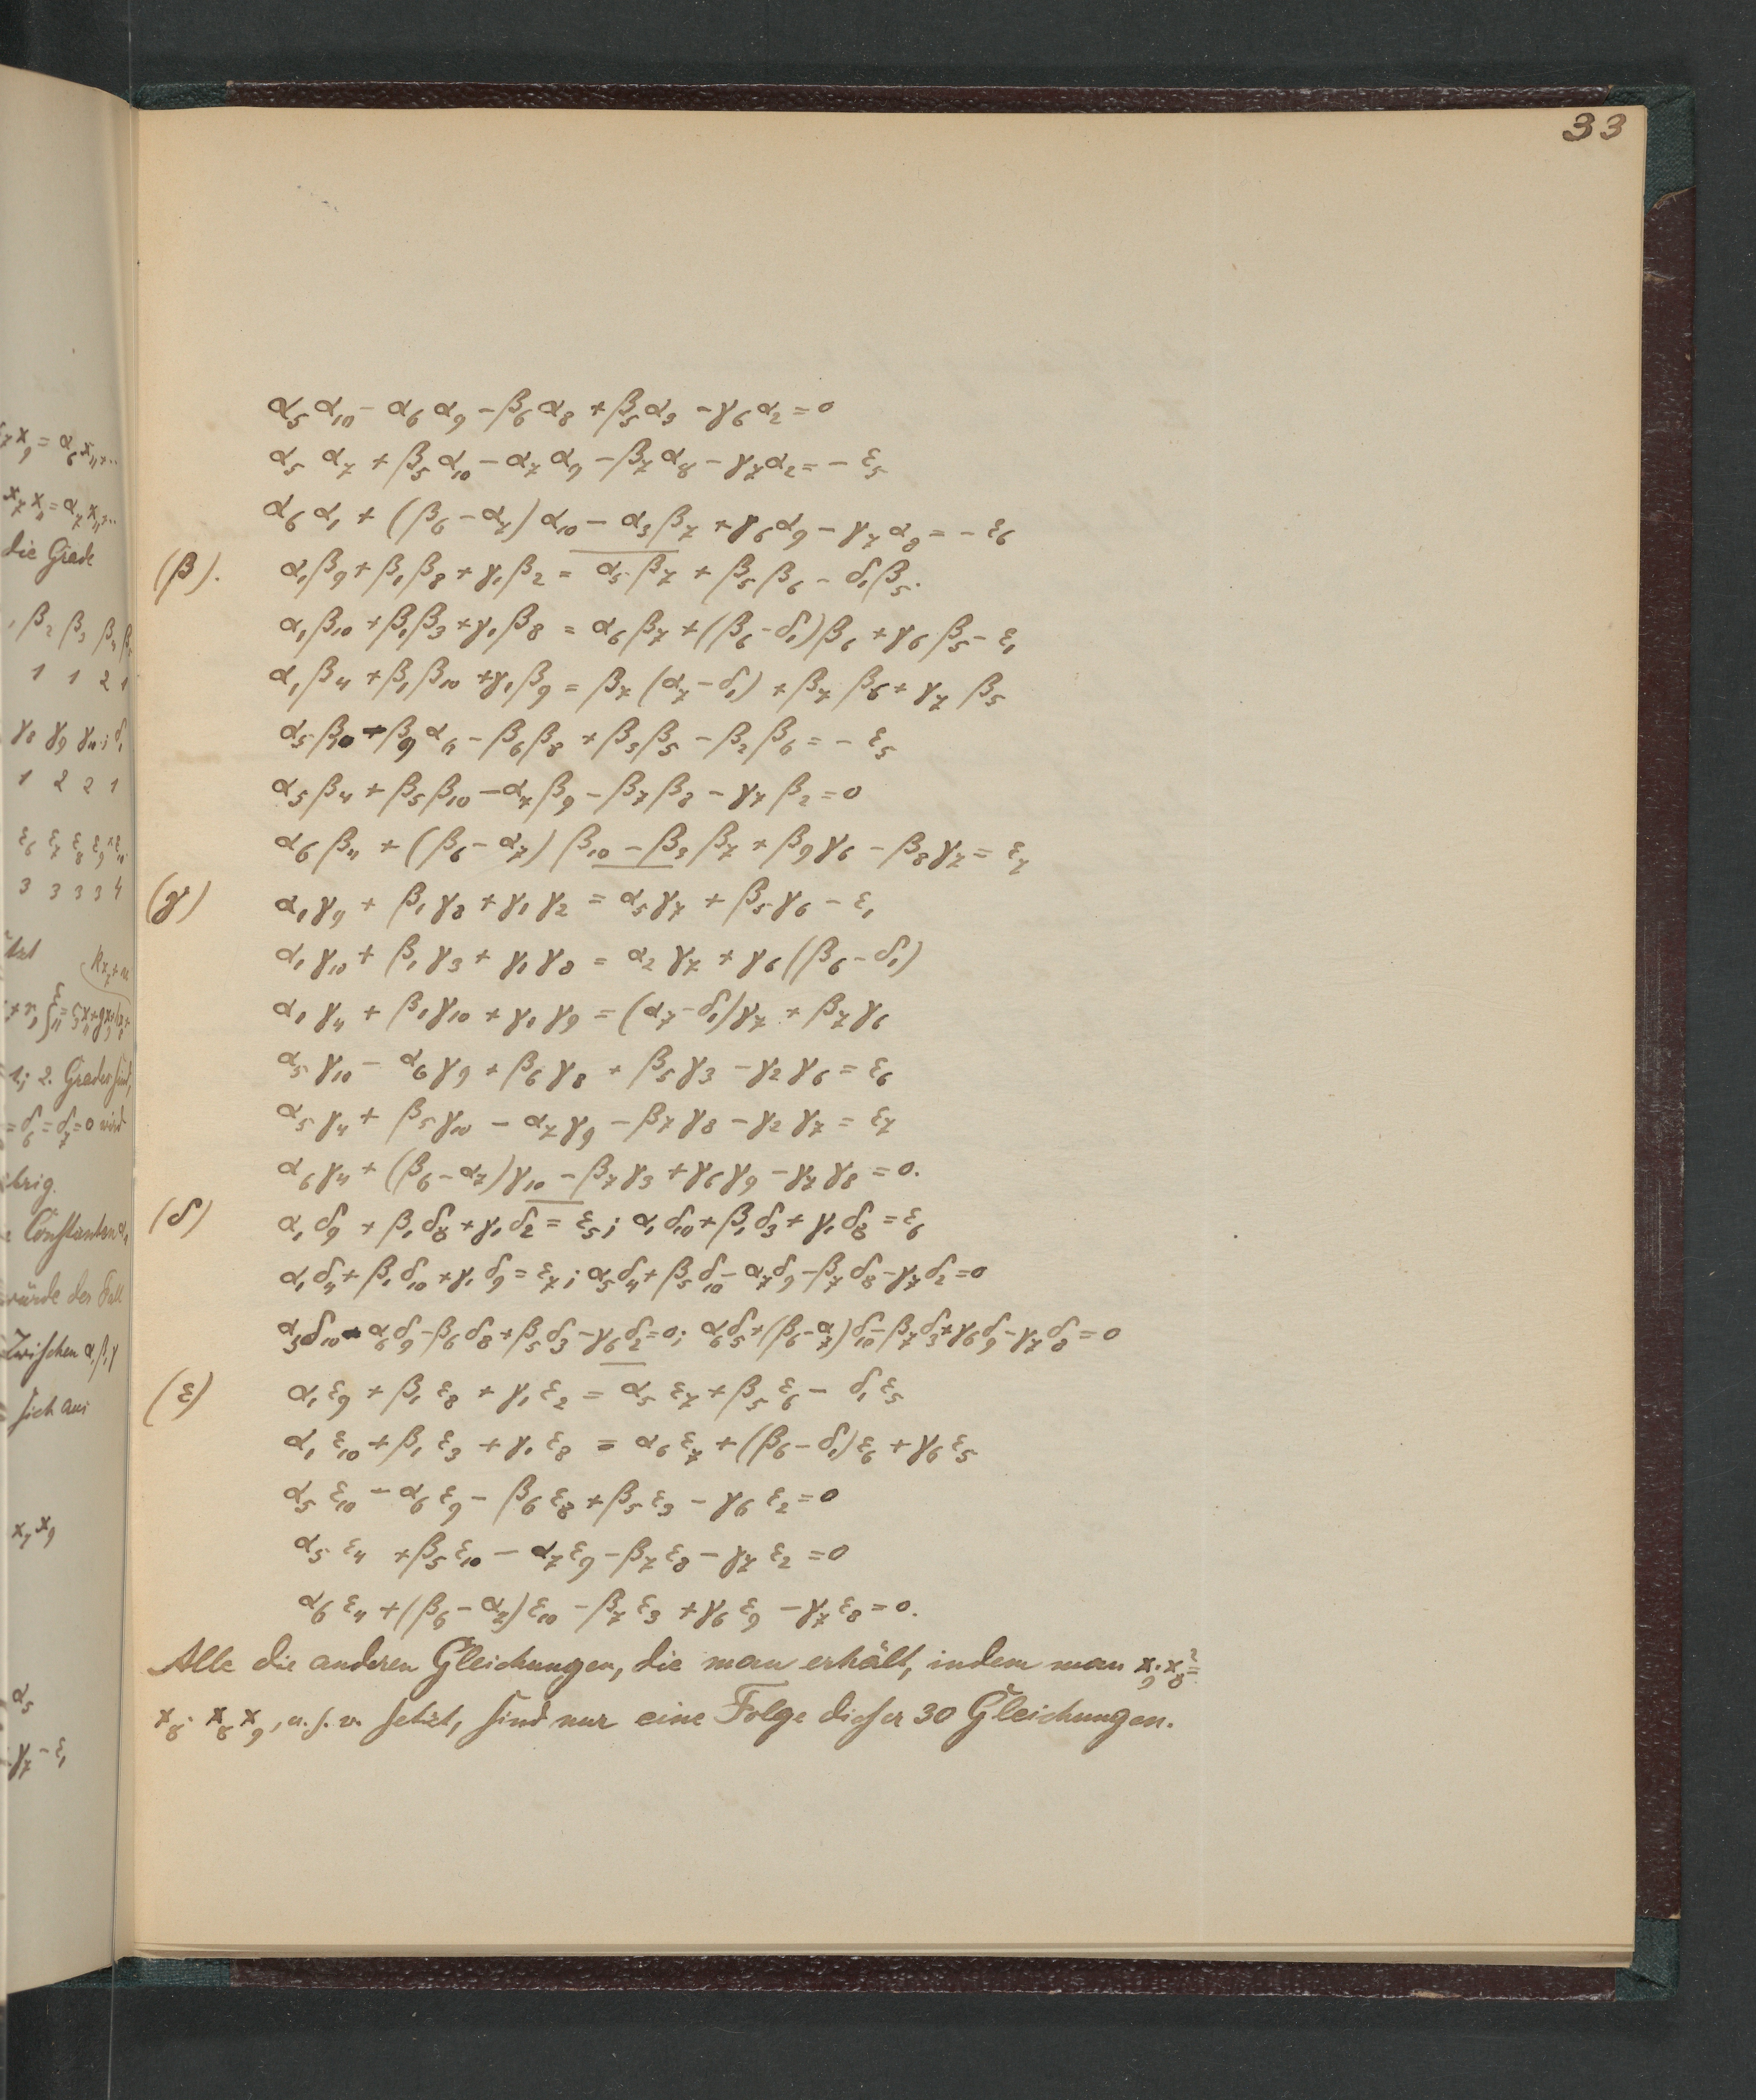 33
α₅α₁₀ - α₆α₉ - β₆α₈ + β₅α₃ - γ₆α₂ = 0
α₅ α₇ + β₅α₁₀ - α₇α₉ - β₇α₈ - γ₇α₂ = - ε₅
α₆α₁ + (β₆ - α₇)α₁₀ - α₃β₇ + γ₆α₉ - γ₇α₈ = - ε₆
(β). α₁β₉ + β₁β₈ + γ₁β₂ = α₅β₇ + β₅β₆ - δ₁β₅.
α₁β₁₀ + β₁β₃ + γ₁β₈ = α₆β₇ + (β₆ - δ₁)β₆ + γ₆β₅ - ε₁
α₁β₄ + β₁β₁₀ + γ₁β₉ = β₇(α₇ - δ₁) + β₇β₆ + γ₇β₅
α₅β₁₀ - β₉α₆ - β₆β₈ + β₃β₅ - β₂β₆ = - ε₅
α₅β₄ + β₅β₁₀ - α₇β₉ - β₇β₈ - γ₇β₂ = 0
α₆β₄ + (β₆ - α₇)β₁₀ - β₃β₇ + β₉γ₆ - β₈γ₇ = ε₇
(γ) α₁γ₉ + β₁γ₈ + γ₁γ₂ = α₅γ₇ + β₅γ₆ - ε₁
α₁γ₁₀ + β₁γ₃ + γ₁γ₈ = α₂γ₇ + γ₆(β₆ - δ₁)
α₁γ₄ + β₁γ₁₀ + γ₁γ₉ = (α₇ - δ₁)γ₇ + β₇γ₆
α₅γ₁₀ - α₆γ₉ + β₆γ₈ + β₅γ₃ - γ₂γ₆ = ε₆
α₅γ₄ + β₅γ₁₀ - α₇γ₉ - β₇γ₈ - γ₂γ₇ = ε₇
α₆γ₄ + (β₆ - α₇)γ₁₀ - β₇γ₃ + γ₆γ₉ - γ₇γ₈ = 0.
(δ) α₁δ₉ + β₁δ₈ + γ₁δ₂ = ε₅; α₁δ₁₀ + β₁δ₃ + γ₁δ₈ = ε₆
α₁δ₄ + β₁δ₁₀ + γ₁δ₉ = ε₇; α₅δ₄ + β₅δ₁₀ - α₇δ₉ - β₇δ₈ - γ₇δ₂ = 0
α₅δ₁₀ - α₆δ₉ - β₆δ₈ + β₅δ₃ - γ₆δ₂ = 0; α₆δ₅ + (β₆ - α₇)δ₁₀ - β₇δ₃ + γ₆δ₉ - γ₇δ₈ = 0
(ε) α₁ε₉ + β₁ε₈ + γ₁ε₂ = α₅ε₇ + β₅ε₆ - δ₁ε₅
α₁ε₁₀ + β₁ε₃ + γ₁ε₈ = α₆ε₇ + (β₆ - δ₁)ε₆ + γ₆ε₅
α₅ε₁₀ - α₆ε₉ - β₆ε₈ + β₅ε₃ - γ₆ε₂ = 0
α₅ε₄ + β₅ε₁₀ - α₇ε₉ - β₇ε₈ - γ₇ε₂ = 0
α₆ε₄ + (β₆ - α₇)ε₁₀ - β₇ε₃ + γ₆ε₉ - γ₇ε₈ = 0.
Alle die anderen Gleichungen, die man erhält, indem man x₉·x₈² =
x₈·x₈x₉, u.s.v. setzt, sind nur eine Folge dieser 30 Gleichungen.
x₇x₉ = α₆x₁₁+..
x₇x₁₁ = α₇x₁₁..
die Grade
β₂ β₃ β₄
1 1 2 1
γ₈ γ₉ γ₁₀; δ₁
1 2 2 1
ε₆ ε₇ ε₈ ε₉ ε₁₀
3 3 3 3 4
1; 2. Grades sind,
= δ₆ = δ₇ = 0 wird
brig.
Constanten α₁
würde der Fall
Zwischen α, β, γ
sich aus
x₇x₉
α₅
γ₇ - ε₁